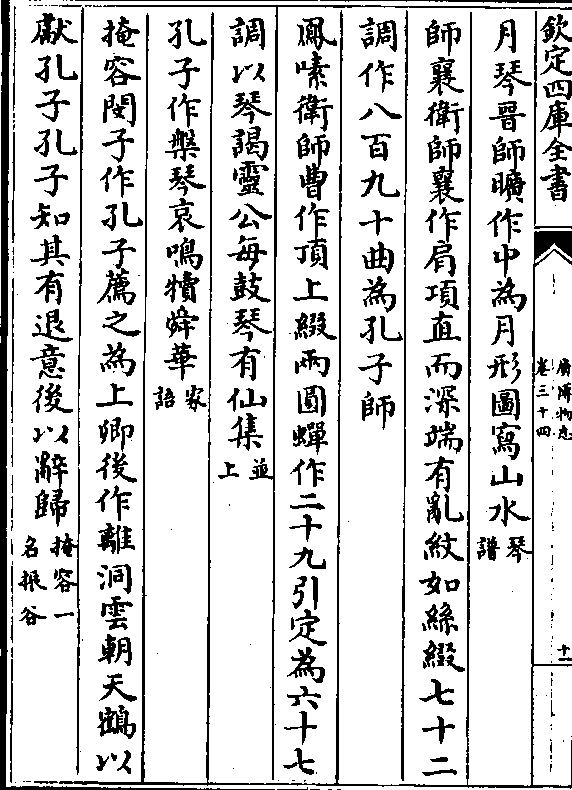 欽定四庫全書
廣博物志
卷三十四
十一
月琴晉師曠作中為月形圖寫山水琴譜
師襄衛師襄作肩項直而深端有亂紋如絲綴七十二
調作八百九十曲為孔子師
鳳嗉衛師曹作頂上綴兩圓蟬作二十九引定為六十七
調以琴謁靈公每鼓琴有仙集並上
孔子作槃琴哀鳴犢舜華家語
掩容閔子作孔子薦之為上卿後作離洞雲朝天鶴以
獻孔子孔子知其有退意後以辭歸掩容一名振谷